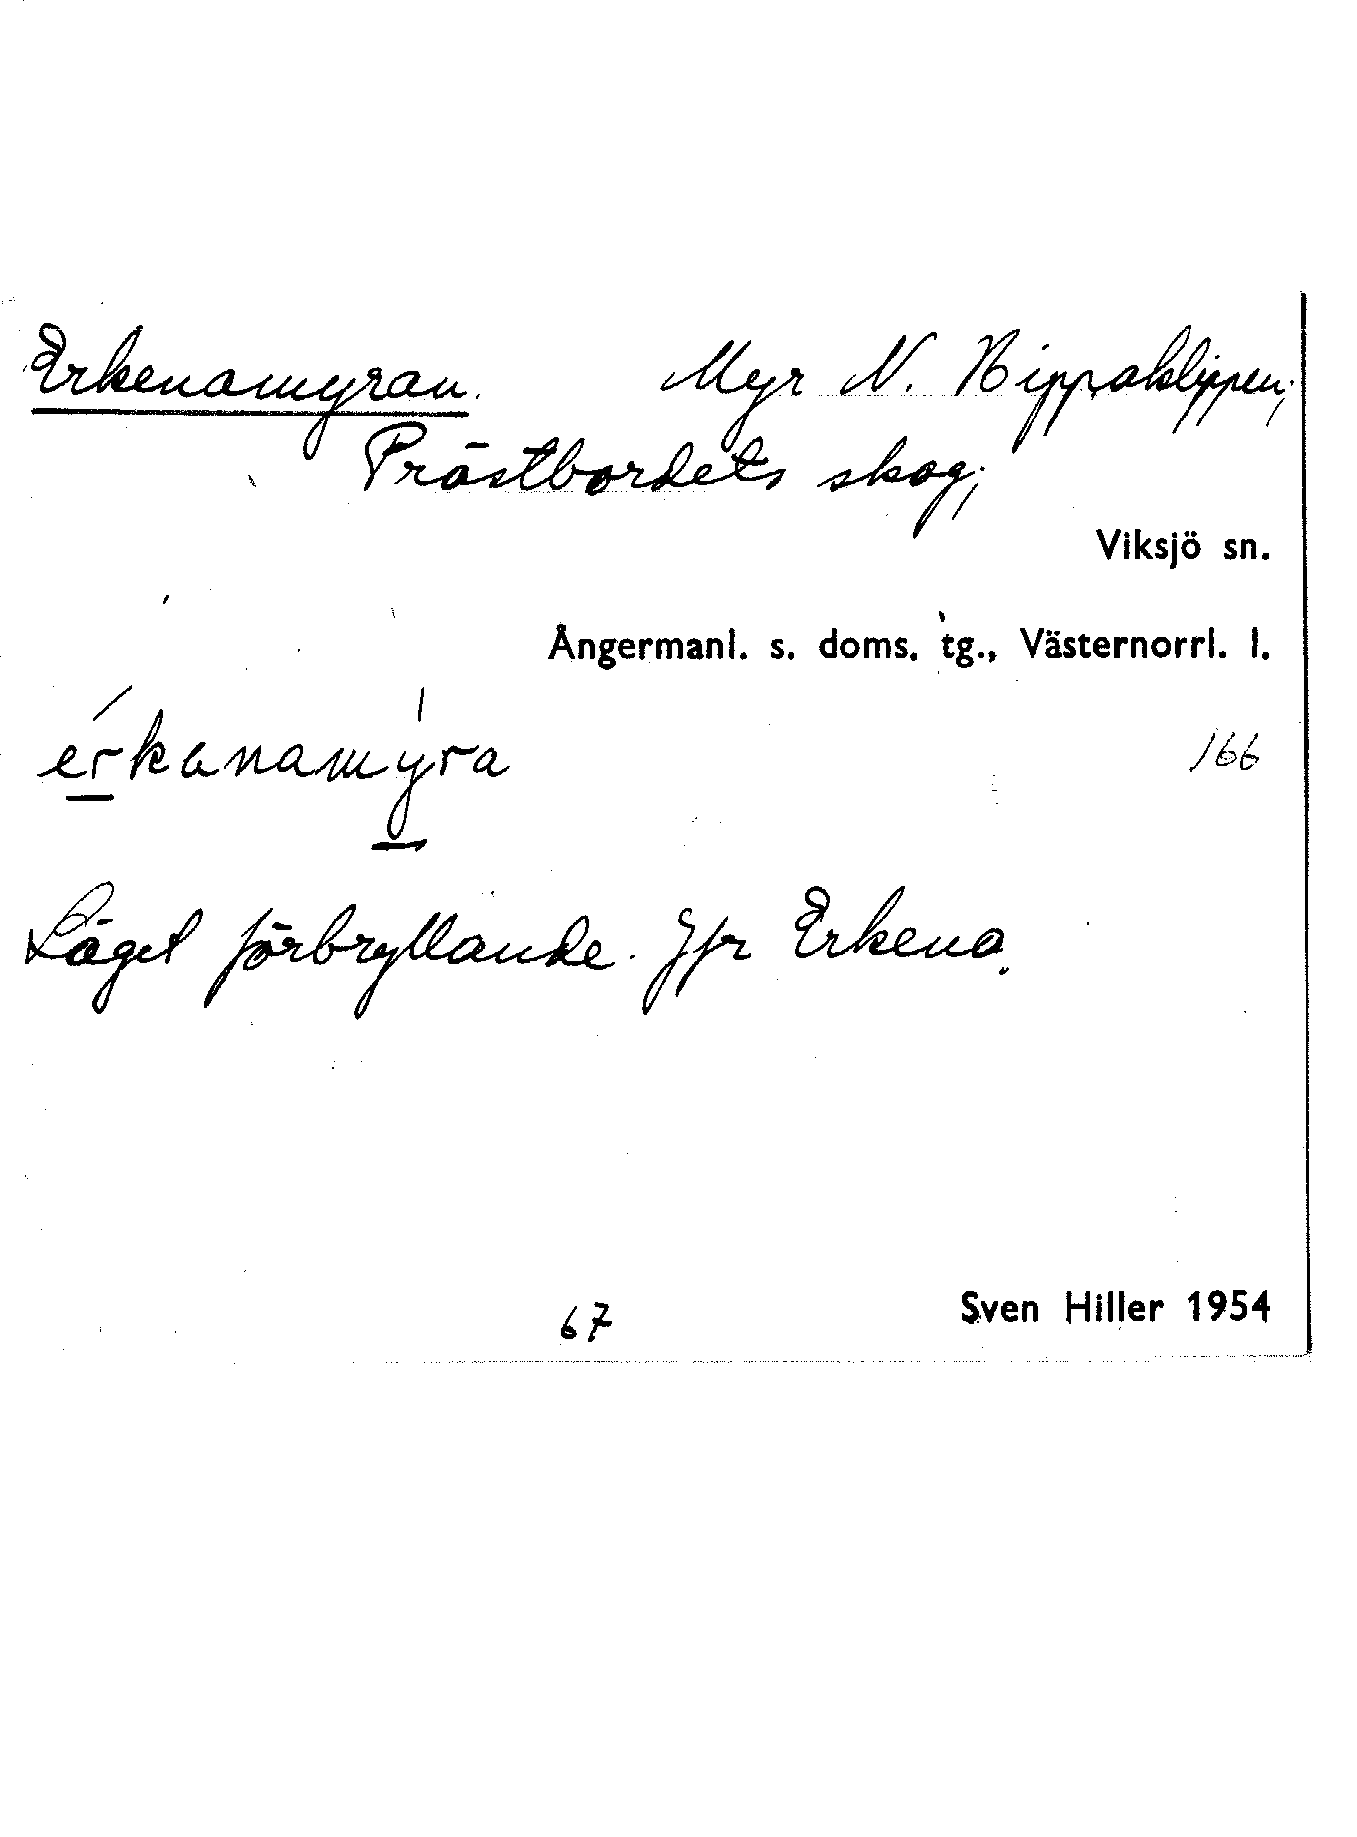 Erkenamyran. Myr N. Hippaklippen;
Prästbordets skog;
Viksjö sn.
Ångermanl. s. doms. tg., Västernorrl. l.
érkanamy̍ra
166
Läget förbryllande. Jfr Erkena.
67
Sven Hiller 1954